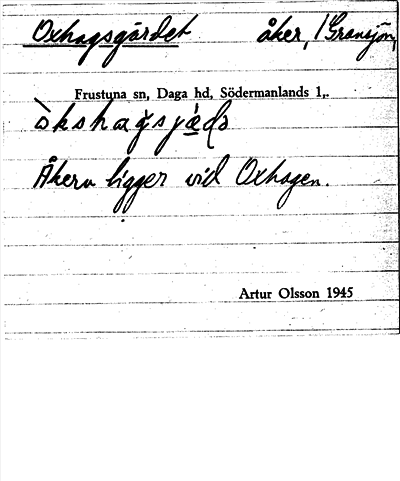 Oxhagsgärdet åker, /Gransjön,
Frustuna sn, Daga hd, Södermanlands l,.
Åkern ligger vid Oxhagen.
Artur Olsson 1945